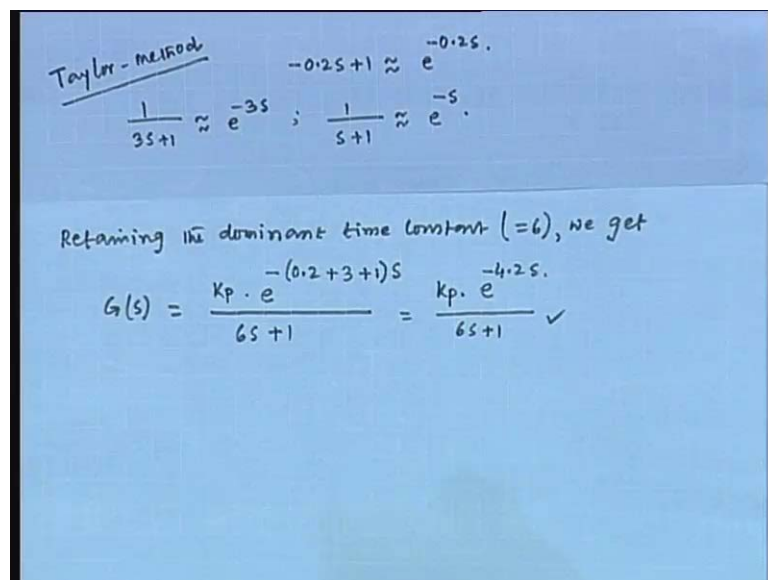 Taylor-method
-0.2s+1 ≈ e^{-0.2s}.
\frac{1}{3s+1} ≈ e^{-3s} ; \frac{1}{s+1} ≈ e^{-s}.
Retaining the dominant time constant (=6), we get
G(s) = \frac{Kp · e^{-(0.2+3+1)s}}{6s+1} = \frac{Kp. e^{-4.2s.}}{6s+1} ✓